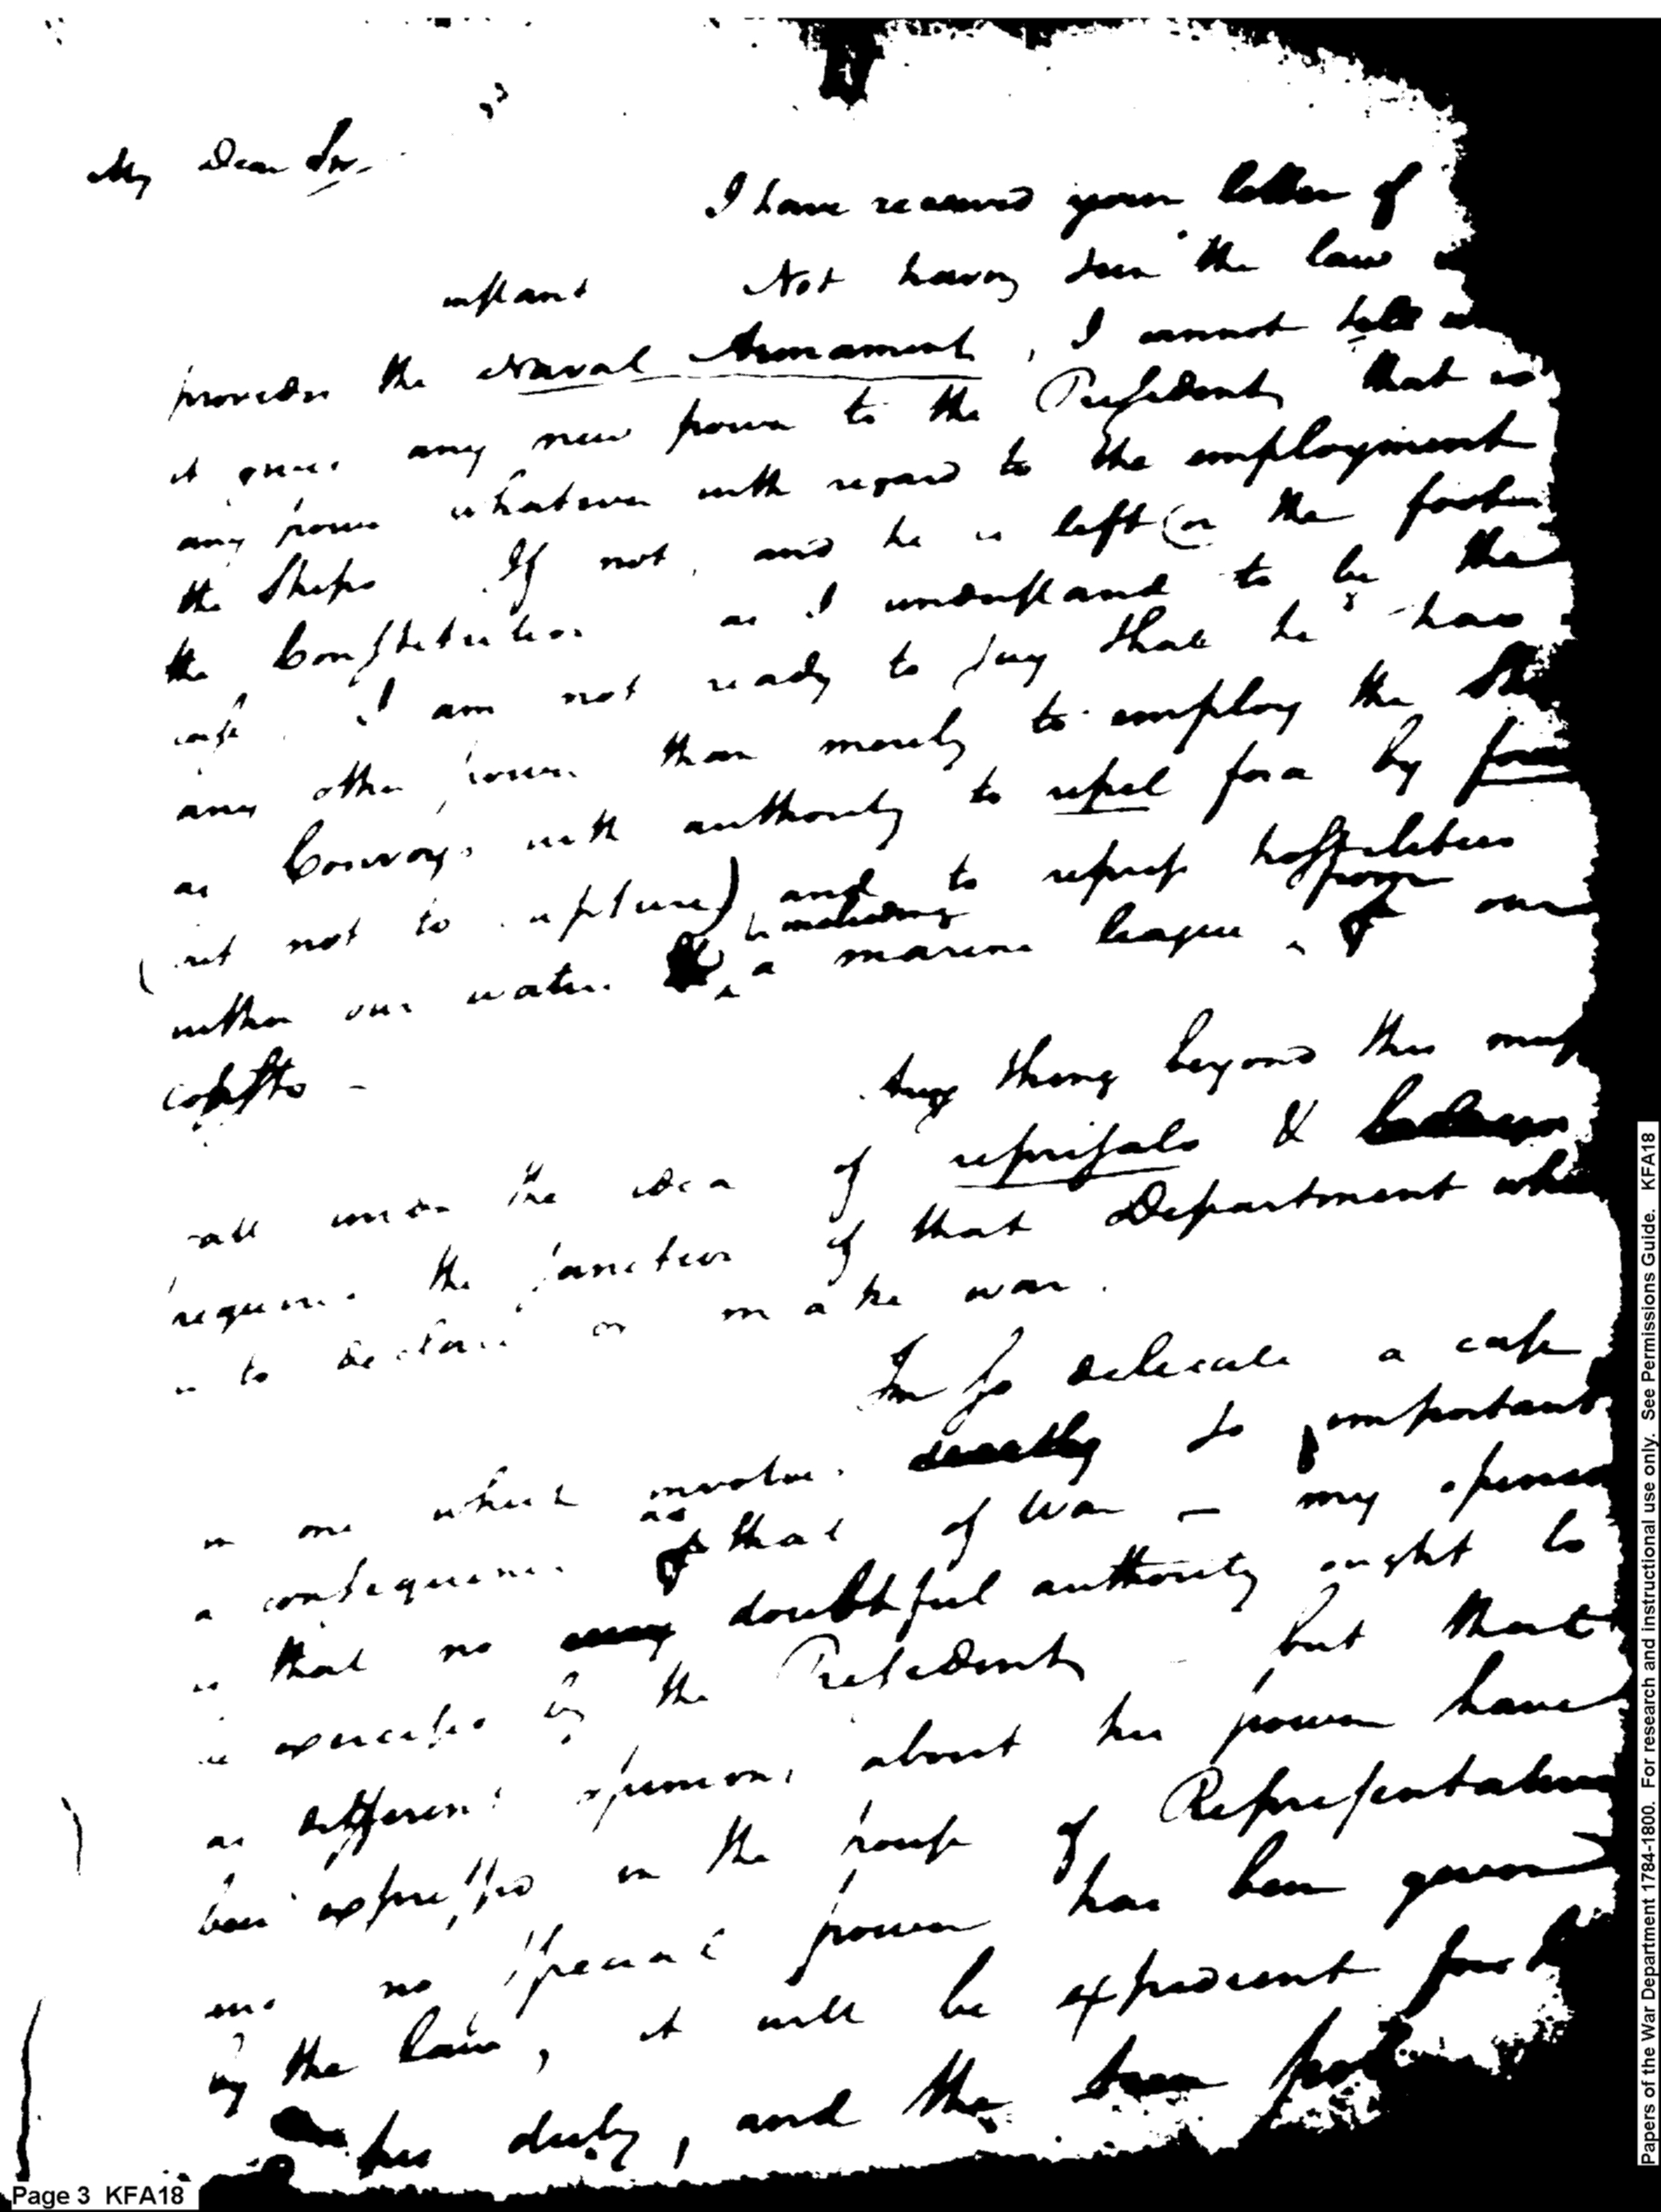 My Dear Sir,
I have received your letter of
instant Not having seen the law
provides the Naval Armament, I cannot tell
it gives any new power to the President that is
any power whatever with regard to the employment
the Ships. If not, and he is left on the foot
the Constitution as I understand to be the
case. I am not ready to say that he has
any other power than merely to employ the
as Convoys with authority to repel force by force
not to capture) and to repress hostilities
within our waters including a marine league from our
coasts -
Any thing beyond this must
fall under the idea of reprisals &
require the sanction of that Department
is to declare or make war.
In so delicate a case
in one which involves so important
a consequence as that of War - my
is that no doubtful authority ought to
be exercised by the President - but that
as different opinions about his power have
been expressed in the house of
and no special power has been given
by the law, it will be expedient
his duty, and the
Page 3 KFA18
Papers of the War Department 1784-1800. For research and instructional use only. See Permissions Guide. KFA18